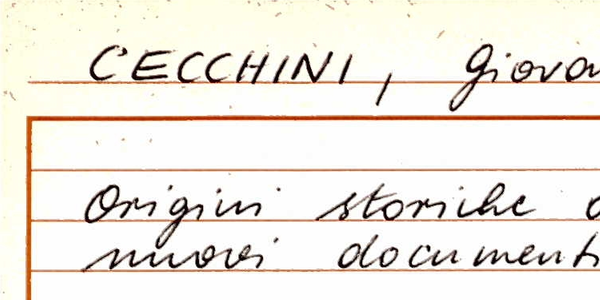 CECCHINI, Giova
Origini storiche d
nuovi documenti